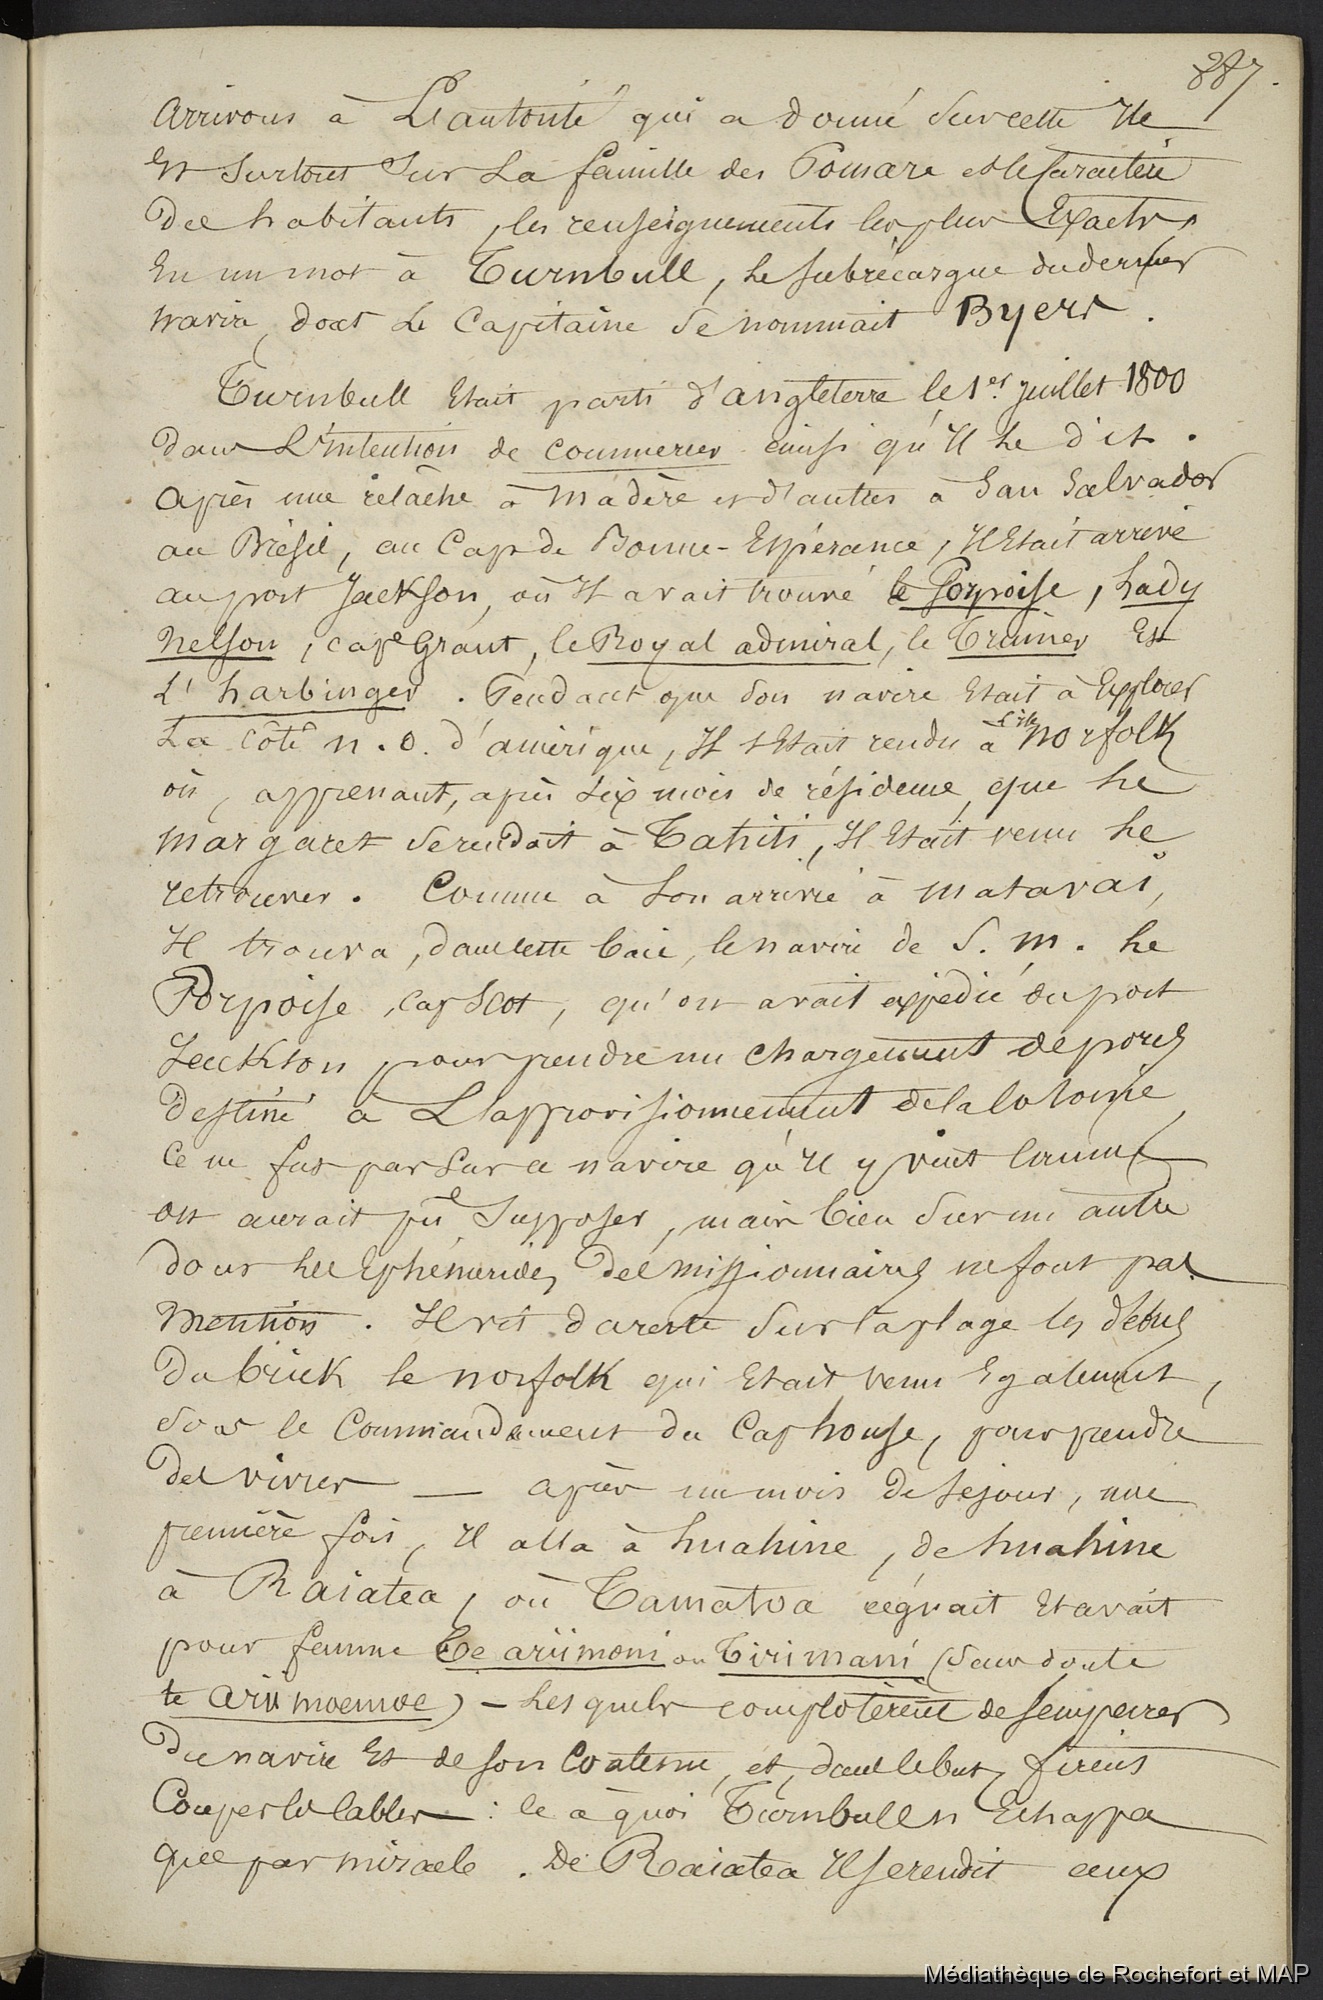 887.
arrivons à L'autorité qui a donné sur cette Ile
Et surtout sur La famille des Pomare et le Caractère
des habitants, les renseignements les plus Exacts,
En un mot à Turnbull, le subrécargue du dernier
navire, dont Le Capitaine se nommait Byers.
Turnbull Etait parti d'angleterre le 1er juillet 1800
dans L'intention de commercer ainsi qu'Il le dit.
après une relâche à Madère et d'autres à San Salvador
au Brésil, au Cap de Bonne-Espérance, Il Etait arrivé
au port Jackson, où Il avait trouvé le Porpoise, Lady
Nelson, cape Grant, le Royal admiral, le Trimer Et
L'harbinger. Pendant que son navire Etait à Explorer
La côte n.o. d'amérique, Il s'Etait rendu à L'ile Norfolk
où, apprenant, après six mois de résidence, que le
Margaret se rendait à Tahiti, Il Etait venu le
retrouver. Comme à Son arrivée à Matavai,
Il trouva, dans cette baie, le navire de S. M. le
Porpoise, cap Scot, qu'on avait expédié du port
Jackson pour prendre un chargement de porcs
destiné à L'approvisionnement de la Colonie,
Ce ne fut pas sur ce navire qu'Il y vint comme
on aurait pu le Supposer, mais bien sur un autre
dont les Ephémérides des missionnaires ne font pas
Mention. Il vit de reste sur la plage les débris
du brick le norfolk qui Etait venu Egalement,
sous le Commandement du Cap house, pour prendre
des vivres — après un mois de séjour, une
première fois, Il alla à huahine, de huahine
à Raiatea, où Tamatoa régnait Et avait
pour femme Te ariimoni ou Tirimani (sans doute
te arii moemoe) – Lesquels complotèrent de s'emparer
du navire Et de son Contenu, et, dans ce but, firent
Couper les cables : ce à quoi Turnbull n'Echappa
que par miracle. De Raiatea Il se rendit aux
Médiathèque de Rochefort et MAP